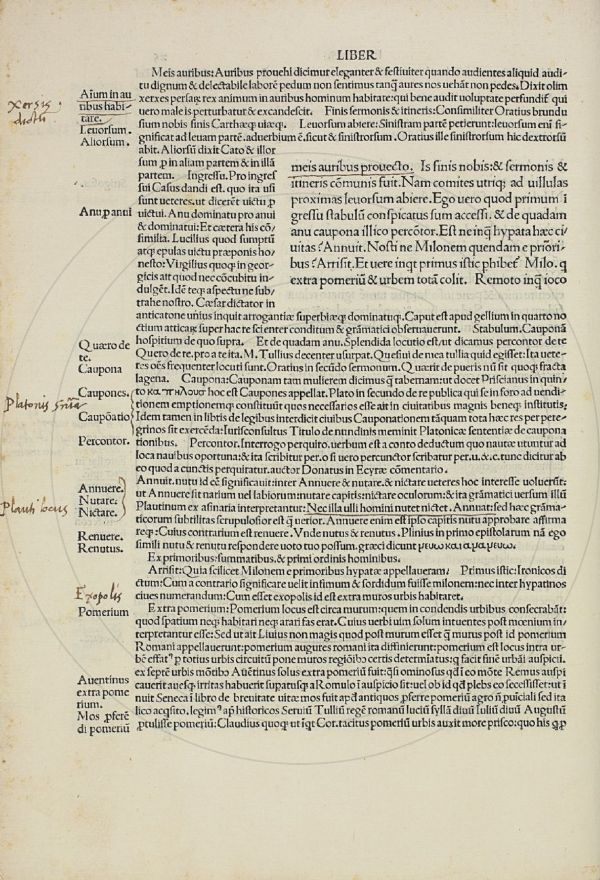 LIBER
Meis auribus: Auribus prouehi dicimur eleganter & festiuiter quando audientes aliquid audi/
tu dignum & delectabile laborē pedum non sentimus tanq̃ aures nos uehāt non pedes. Dixit olim
xerxes persaꝝ rex animum in auribus hominum habitate: qui bene audit uoluptate perfundit̃ qui
uero male is perturbatur & excandescit. Finis sermonis & itineris: Consimiliter Oratius brundu
sium nobis finis Carthæq; uiæq;. Leuorsum abiere: Sinistram parté petierunt: leuorsum enī si/
gnificat ad leuam parté. aduerbium é. sicut & sinistrorsum. Oratius ille sinistrorsum hic dextrorsū
abit. Aliorsū dixit Cato & illor
sum ꝓ in aliam partem & in illā
partem. Ingressui. Pro ingres/
sui Casus dandi est. quo ita usi
sunt ueteres. ut dicerét uictu ꝓ
uictui. Anu dominatu pro anui
& dominatui: Et cætera his cō/
similia. Lucilius quod sumptū
atq; epulas uictu præponis ho/
nesto: Virgilius quoq; in geor/
gicis ait quod nec cōcubitu in/
dulgét. Idē teq; aspectu ne sub/
trahe nostro. Cæsar dictator in
meis auribus prouecto. Is finis nobis: & sermonis &
itineris cōmunis fuit. Nam comites utriq; ad uillulas
proximas leuorsum abiere. Ego uero quod primum ī
gressu stabulū conspicatus sum accessi. & de quadam
anu caupona illico percōtor. Est ne inq̃ hypata hæc ci/
uitas? Annuit. Nosti ne Milonem quendam e priori/
bus? Arrisit. Et uere inqt primus istic phibet̃ Milo. q
extra pomeriū & urbem totā colit. Remoto inq̃ ioco
anticatone unius inquit arrogantiæ superbiæq; dominatuq;. Caput est apud gellium in quarto no
ctium atticaꝝ super hac re scienter conditum & grāmatici obseruauerunt. Stabulum. Cauponā
hospitium de quo supra. Et de quadam anu. Splendida locutio est/ut dicamus percontor de te
Quero de te. pro a te ita. M. Tullius decenter usurpat. Quesiui de mea tullia quid egisset: Ita uete/
res oēs frequenter locuti sunt. Oratius in secūdo sermonum. Quærit de pueris nū sit quoq; fracta
lagena. Caupona: Cauponam tam mulierem dicimus q̃ tabernam: ut docet Priscianus in quin/
to κα τηλους hoc est Caupones appellat. Plato in secundo de re publica qui se in foro ad uendi
tionem emptionemq; constituūt quos necessarios esse ait in ciuitatibus magnis beneq; institutis:
Idem tamen in libris de legibus interdicit ciuibus Cauponationem tāquam tota hæc res per pere/
grinos sit exercēda: Iurisconsultus Titulo de nundinis meminit Platonicæ sententiæ de caupona
tionibus. Percontor. Interrogo perquito. uerbum est a conto deductum quo nautæ utuntur ad
loca nauibus oportuna: & ita scribitur per .o. si uero percunctor scribatur per .u. & .c. tunc dicitur ab
eo quod a cunctis perquiratur. auctor Donatus in Ecyræ cōmentario.
Annuit. nutu id eē significauit: inter Annuere & nutare. & nictare ueteres hoc interesse uoluerūt:
ut Annuere sit natium uel labiorum: nutare capitis: nictare oculorum: & ita grāmatici uersum illū
Plautinum ex asinaria interpretantur: Nec illa ulli homini nutet nictet. Annuat: sed hæc grāma/
ticorum subtilitas scrupulosior est q̃ uerior. Annuere enim est ipso capitis nutu approbare affirma
req;: Cuius contrarium est renuere. Vnde nutus & renutus. Plinius in primo epistolarum nā ego
simili nutu & renutu respondere uoto tuo possum. græci dicunt
Ex primoribus: summatibus. & primi ordinis hominibus.
Arrisit: Quia scilicet Milonem e primoribus hypatæ appellauerā: Primus istic: Ironicos di
ctum: Cum a contrario significare uelit infimum & sordidum fuisse milonem: nec inter hypatinos ciues
numerandum: Cum esset exopolis id est extra muros urbis habitaret.
Extra pomerium: Pomerium locus est circa murum: quem in condendis urbibus consecrabāt:
quod spatium neq; habitari neq; arari fas erat. Cuius uerbi uim solum intuentes post mœnium in/
terpretantur esse: Sed ut ait Liuius non magis quod post murum esset q̃ murus post id pomerium
Romani appellauerunt: pomerium augures romani ita diffinierunt: pomerium est locus intra ur/
bē effat̃ꝰ ꝑ totius urbis circuitū pone muros regiōibꝰ certis determīatus: q facit finē urbāi auspicii.
ex septē urbis mōtibꝰ Auētinus solus extra pomeriū fuit: q̃si ominosus qđ ī eo mōte Remus auspi
cauerit auesq; irritas habuerit supatusq; a Romulo ī auspicio sit: uel ob id qđ plebs eo secessisset: ut ī
nuit Seneca ī libro de breuitate uitæ: mos fuit apud ātiquos ꝓferre pomeriū agro nō puīciali sed ita
lico acqsito. legimꝰ ap̃ historicos Seruiū Tulliū regē romanū luciū syllā diuū Iuliū diuū Augustū
ꝓtulisse pomeriū: Claudius quoq; ut īqt Cor. tacitus pomeriū urbis auxit more prisco: quo his q ꝓ
Xersis
dictū
Aīum in au
ribus habi/
tare.
Leuorsum.
Aliorsum.
Anu ꝓ anui
Quæro de
te.
Caupona
Platonis snīa
Caupones.
Caupōatio
Percontor.
Plauti locus
Annuere.
Nutare.
Nictare.
Renuere.
Renutus.
Exopolis
Pomerium
Auentinus
extra pome
rium.
Mos ꝓferē
di pomeriū